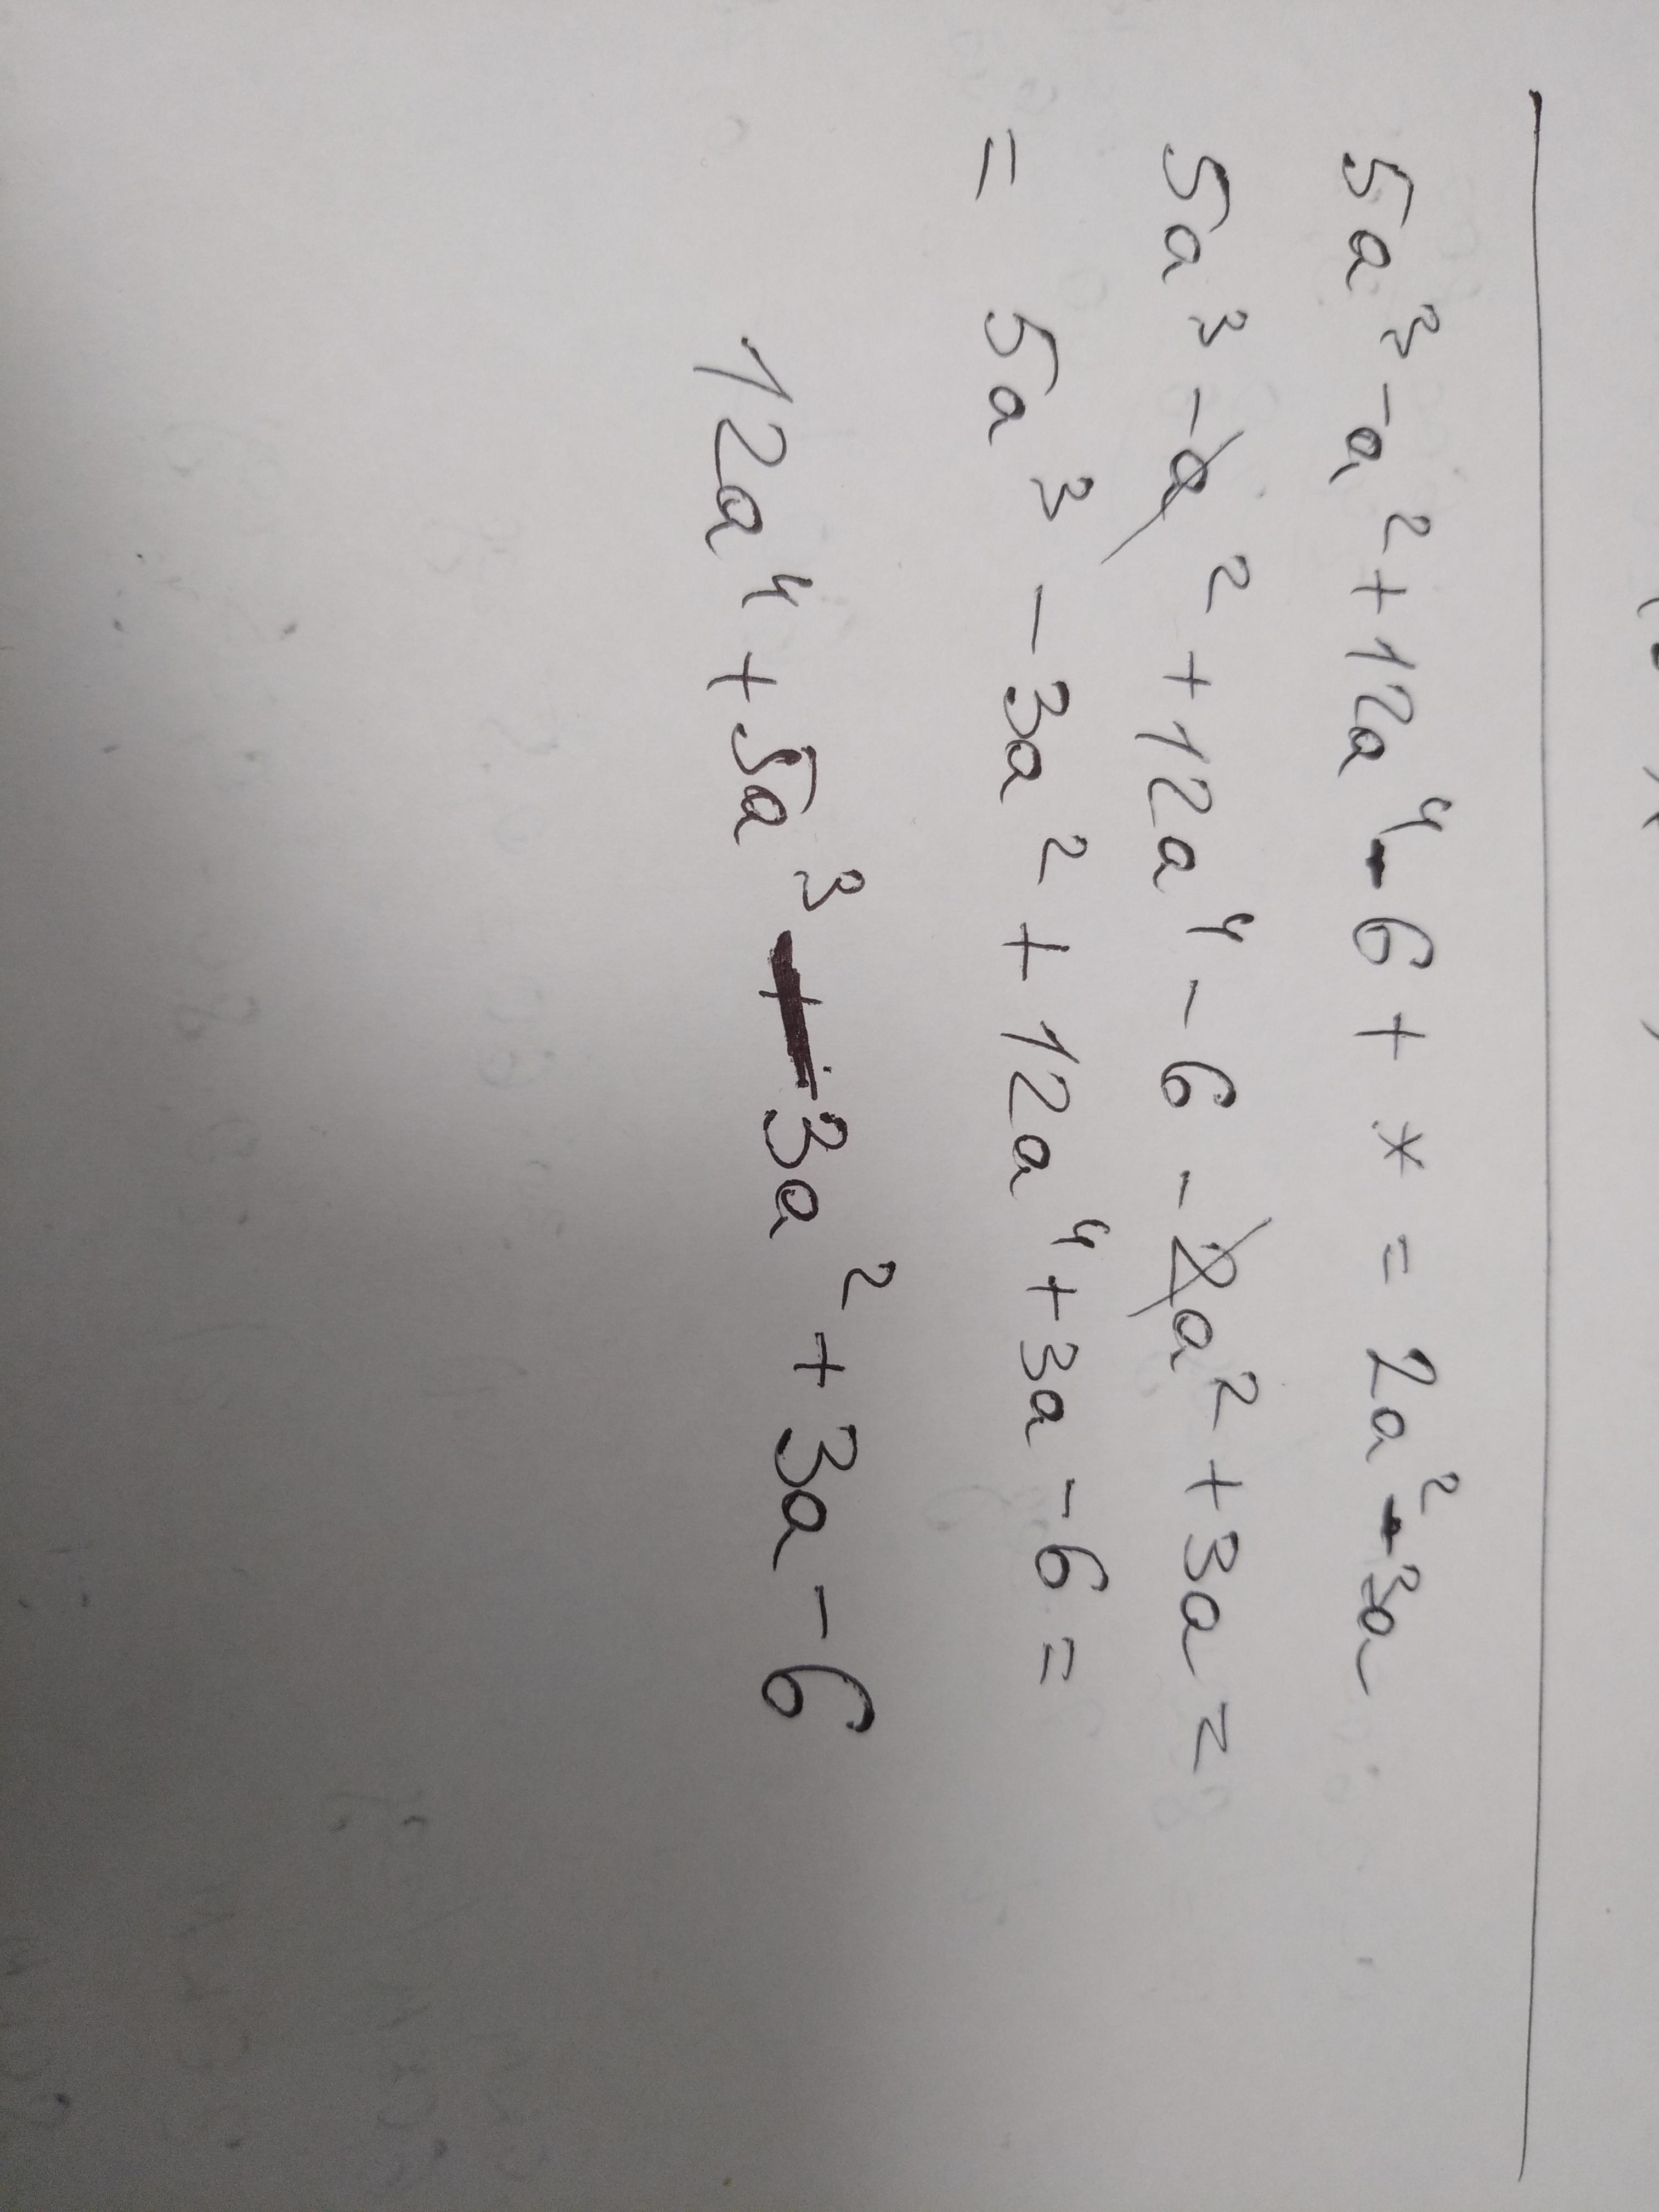 5a³ - a² + 12a⁴ - 6 + * = 2a² - 3a
5a³ - a² + 12a⁴ - 6 - 2a² + 3a =
= 5a³ - 3a² + 12a⁴ + 3a - 6 =
12a⁴ + 5a³ - 3a² + 3a - 6